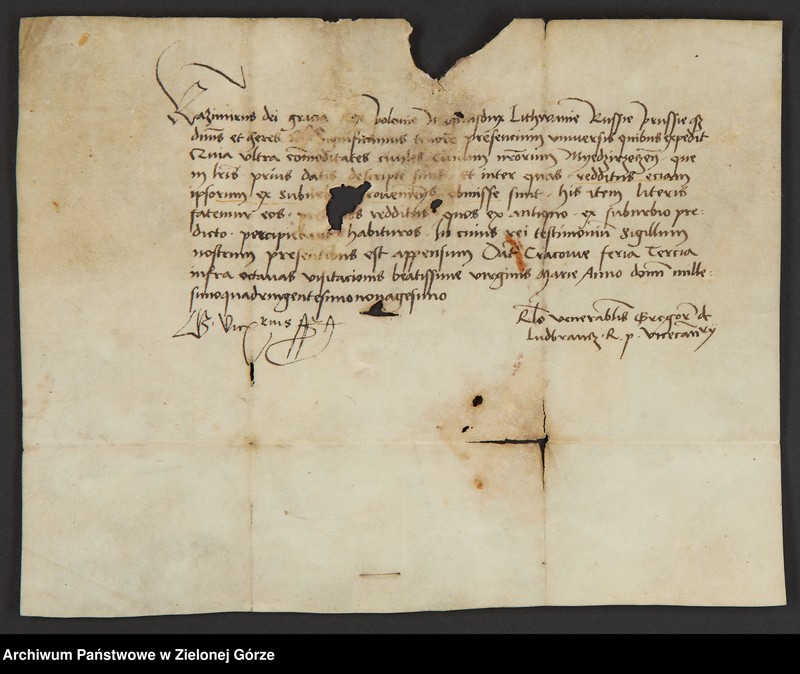 Kazimirus dei gracia Rex polonie Magnusdux Lithwanie Russie prussie qȝ
dn̄us et heres significamus tenore presencium universis quibus expedit
Quia ultra com̄oditates civiles civium nr̄orum Myedzirzeczen̄ que
in lr̄is prius datis descripte sunt et inter quas redditus eciam
ipsorum ex subur proveniens obmisse sunt his item literis
fatemur eos redditus quos ex antiquo ex suburbio pre:
dicto percipie habituros In cuius rei testimoniū Sigillum
nostrum presentibus est appensum Dat̄ Cracovie feria Tercia
infra octavas visitacionis beatissime virginis Marie Anno domī mille:
simoquadringentesimononagesimo
R̄lo venerabilis Gregorī de
Ludbrancz R. p. vicecan̄ry
Archiwum Państwowe w Zielonej Górze